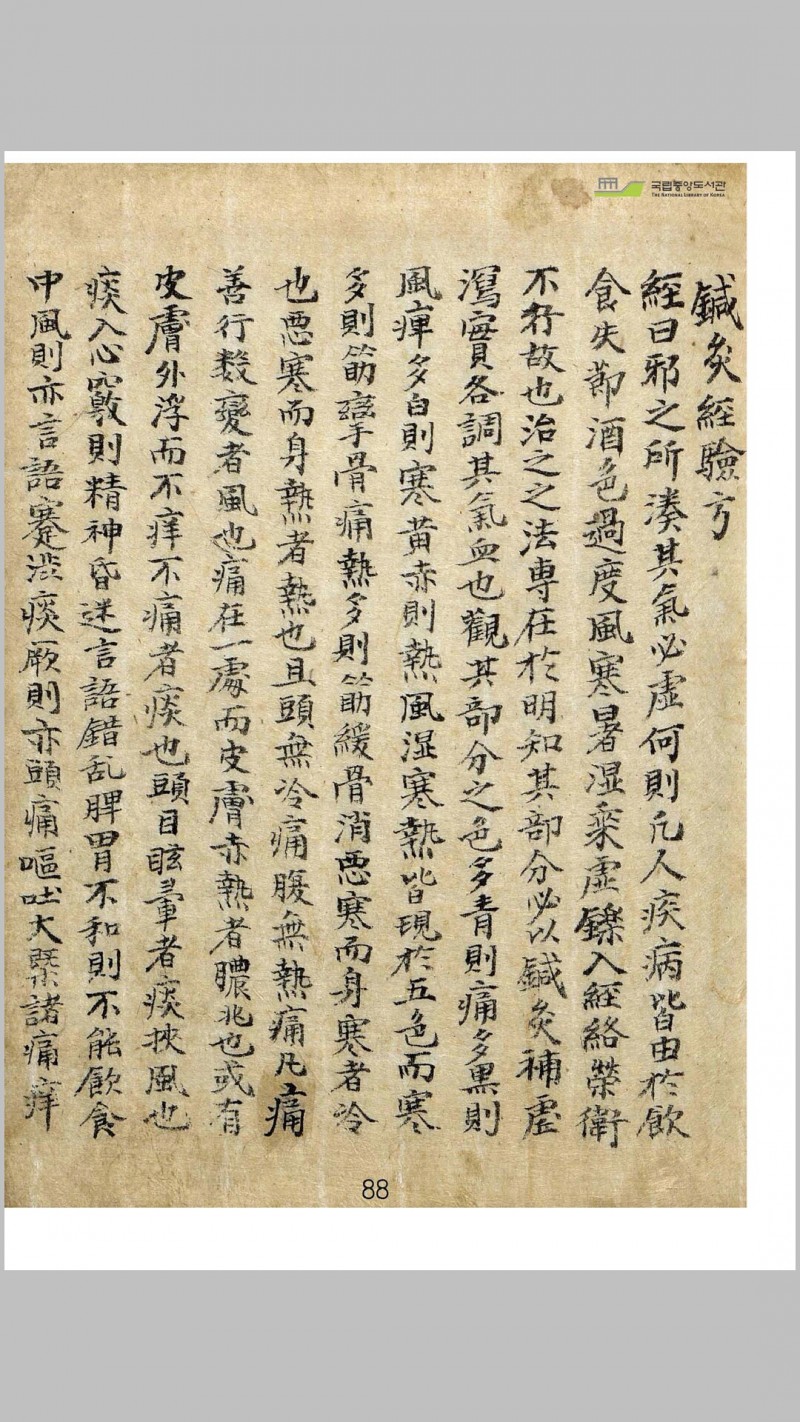 국립중앙도서관
THE NATIONAL LIBRARY OF KOREA
鍼灸經驗方
經曰邪之所湊其氣必虛何則凡人疾病皆由於飮
食失節酒色過度風寒暑湿乗虛鑠入經絡榮衛
不行故也治之之法專在於明知其部分必以鍼灸補虛
瀉實各調其氣血也觀其部分之色多青則痛多黒則
風痺多白則寒黃赤則熱風湿寒熱皆現於五色而寒
多則筋攣骨痛熱多則筋緩骨消惡寒而身寒者冷
也惡寒而身熱者熱也且頭無冷痛腹無熱痛凡痛
善行数變者風也痛在一處而皮膚赤熱者膿兆也或有
皮膚外浮而不痒不痛者痰也頭目眩暈者痰挾風也
痰入心竅則精神昏迷言語錯乱脾胃不和則不能飮食
中風則亦言語蹇澁痰厥則亦頭痛嘔吐大槩諸痛痒
88